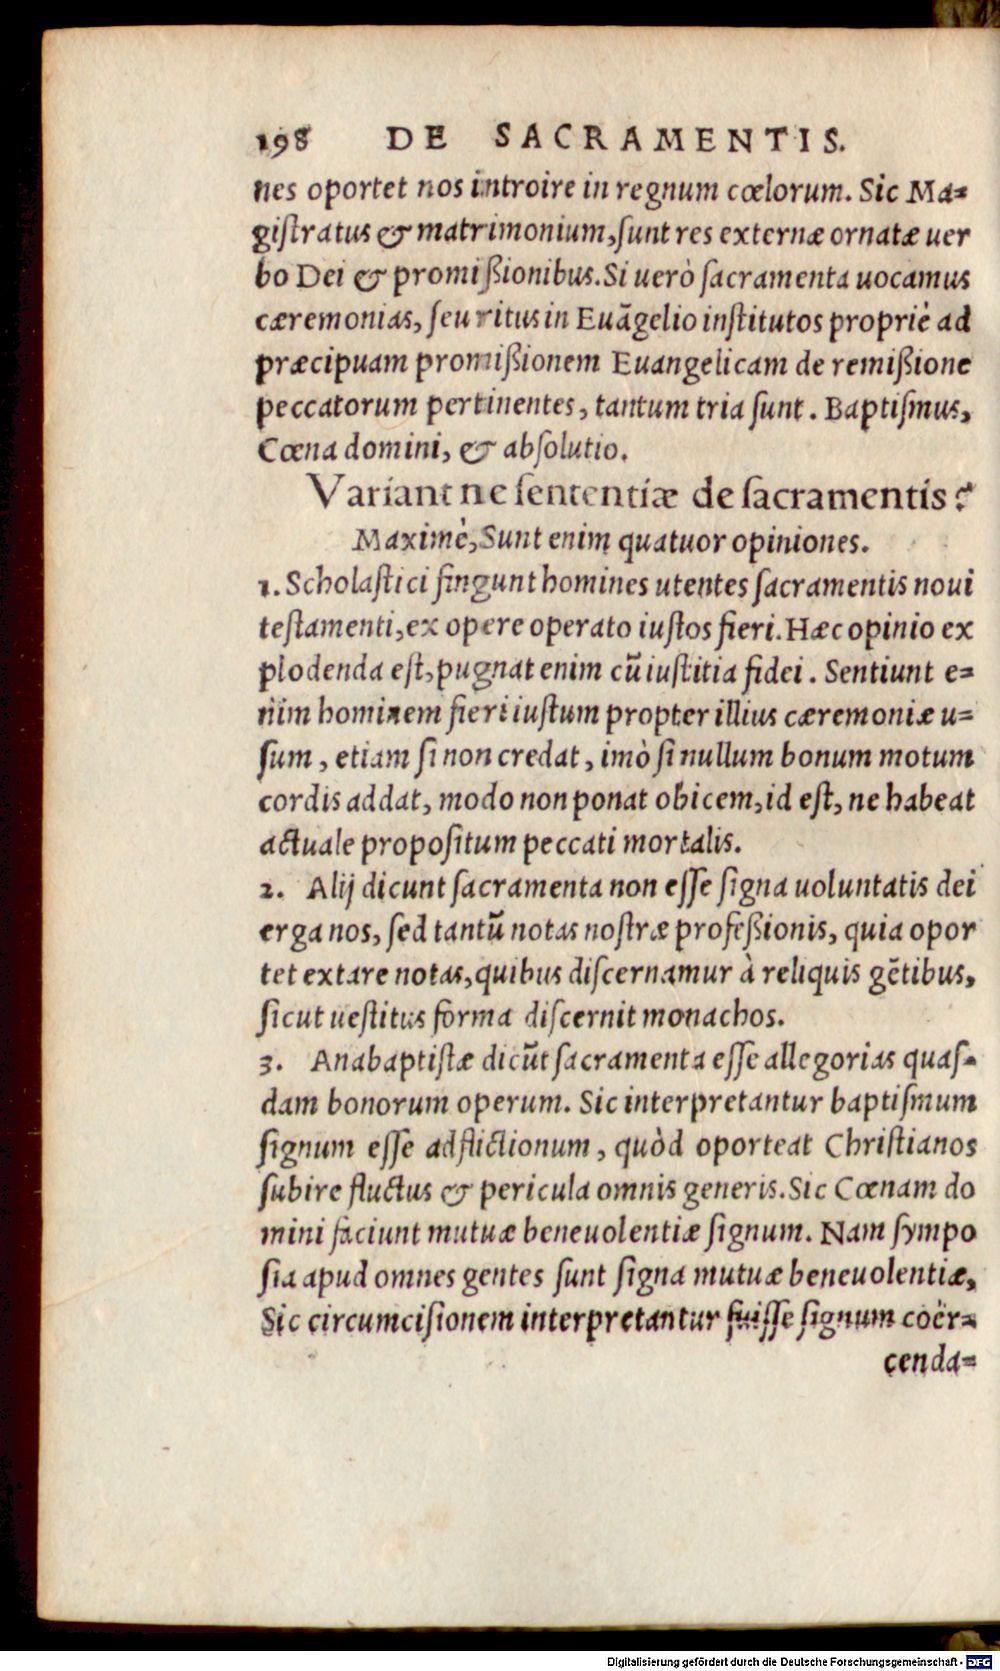 198 DE SACRAMENTIS.
nes oportet nos introire in regnum cœlorum. Sic Ma=
giſtratus & matrimonium, ſunt res externæ ornatæ uer
bo Dei & promißionibus. Si uerò ſacramenta uocamus
cæremonias, ſeu ritus in Euãgelio inſtitutos propriè ad
præcipuam promißionem Euangelicam de remißione
peccatorum pertinentes, tantum tria ſunt. Baptiſmus,
Cœna domini, & abſolutio.
Variant ne ſententiæ de ſacramentis?
Maximè, Sunt enim quatuor opiniones.
1. Scholaſtici fingunt homines utentes ſacramentis noui
teſtamenti, ex opere operato iuſtos fieri. Hæc opinio ex
plodenda eſt, pugnat enim cũ iuſtitia fidei. Sentiunt e=
nim hominem fieri iuſtum propter illius cæremoniæ u=
ſum, etiam ſi non credat, imò ſi nullum bonum motum
cordis addat, modo non ponat obicem, id eſt, ne habeat
actuale propoſitum peccati mortalis.
2. Alij dicunt ſacramenta non eſſe ſigna uoluntatis dei
erga nos, ſed tantũ notas noſtræ profeßionis, quia opor
tet extare notas, quibus diſcernamur à reliquis gẽtibus,
ſicut ueſtitus forma diſcernit monachos.
3. Anabaptiſtæ dicũt ſacramenta eſſe allegorias quaſ=
dam bonorum operum. Sic interpretantur baptiſmum
ſignum eſſe adflictionum, quòd oporteat Chriſtianos
ſubire fluctus & pericula omnis generis. Sic Cœnam do
mini faciunt mutuæ beneuolentiæ ſignum. Nam ſympo
ſia apud omnes gentes ſunt ſigna mutuæ beneuolentiæ,
Sic circumciſionem interpretantur fuiſſe ſignum coër=
cenda=
Digitalisierung gefördert durch die Deutsche Forschungsgemeinschaft - DFG